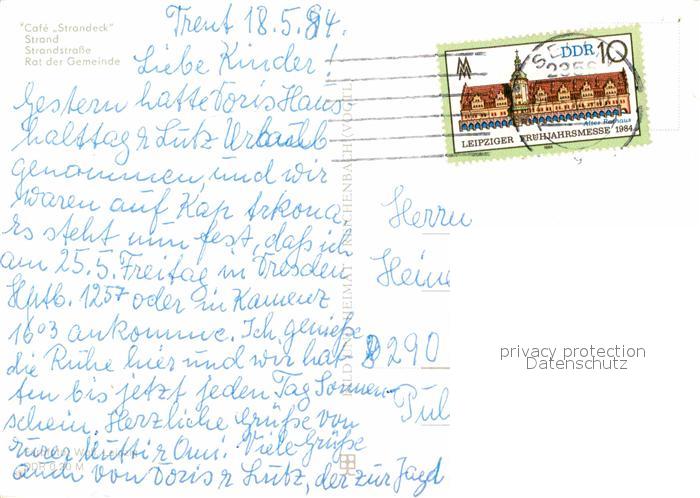 "Café „Strandeck"
Strand
Strandstraße
Rat der Gemeinde
Trent 18.5.84.
Liebe Kinder!
Gestern hatte Doris Haus-
halttag & Lutz Urlaub
genommen, und wir
waren auf Kap Arkona
Es steht nun fest, daß ich
am 25.5. Freitag in Dresden
Hptb. 1257 oder in Kamenz
1603 ankomme. Ich genieße
die Ruhe hier und wir hat-
ten bis jetzt jeden Tag Sonnen-
schein. Herzliche Grüße von
Eurer Mutti & Omi. Viele Grüße
auch von Doris & Lutz, der zur Jagd
DDR 10
LEIPZIGER FRÜHJAHRSMESSE 1984
Altes Rathaus
Herrn
Hein
8290
Pul
privacy protection
Datenschutz